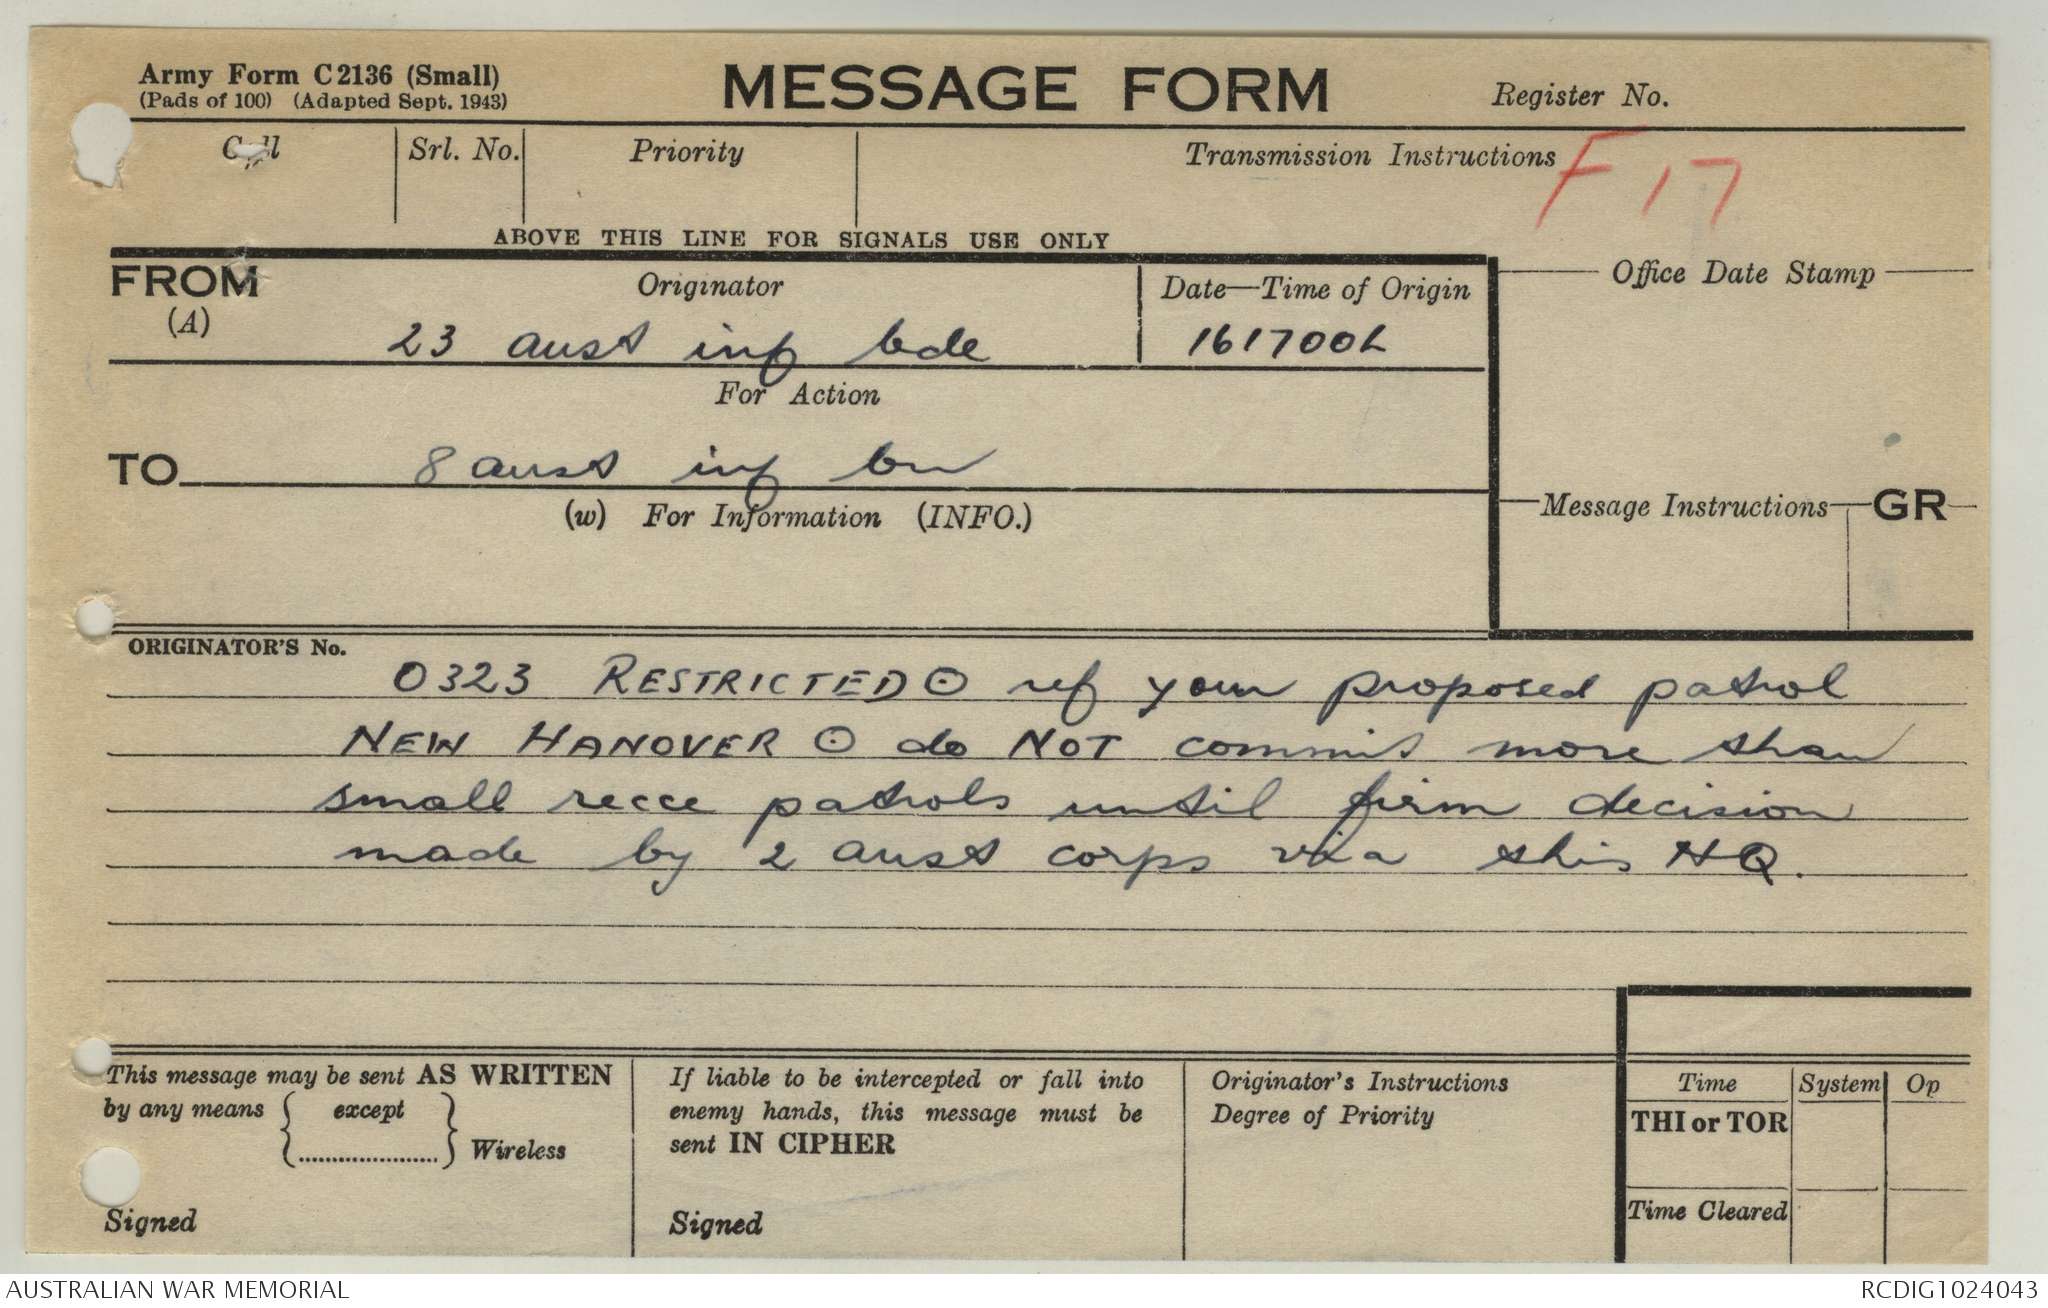 Army Form C2136 (Small)
(Pads of 100) (Adapted Sept. 1943)
MESSAGE FORM
Register No.
Call
Srl. No.
Priority
Transmission Instructions
F 17
ABOVE THIS LINE FOR SIGNALS USE ONLY
FROM
(A)
Originator
Date—Time of Origin
Office Date Stamp
23 aust inf bde
161700L
For Action
TO
8 aust inf bn
(w) For Information (INFO.)
Message Instructions
GR
ORIGINATOR'S No.
0323 RESTRICTED ⊙ ref your proposed patrol
NEW HANOVER ⊙ do NOT commit more than
small recce patrols until firm decision
made by 2 aust corps via this HQ.
This message may be sent AS WRITTEN
by any means { except
..................... } Wireless
Signed
If liable to be intercepted or fall into
enemy hands, this message must be
sent IN CIPHER
Signed
Originator's Instructions
Degree of Priority
Time
System
Op
THI or TOR
Time Cleared
AUSTRALIAN WAR MEMORIAL
RCDIG1024043